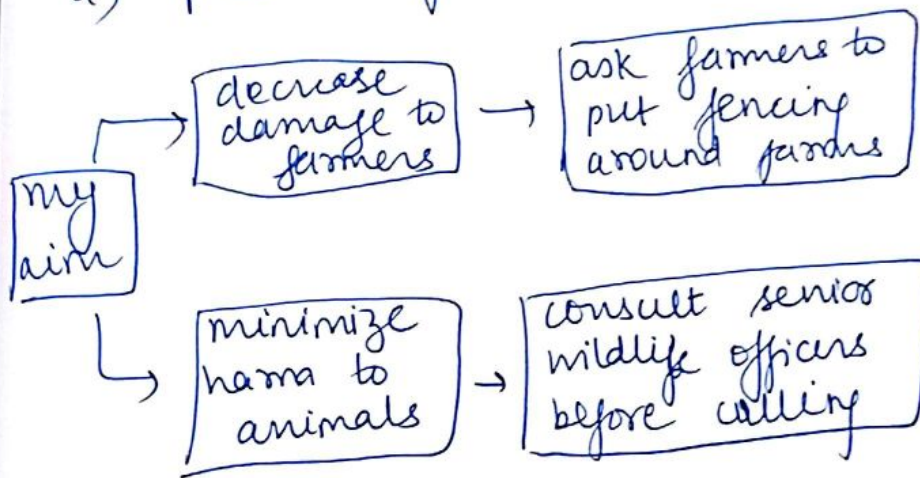 a)
decrease
damage to
farmers
ask farmers to
put fencing
around farms
my
aim
minimize
harm to
animals
consult senior
wildlife officers
before culling